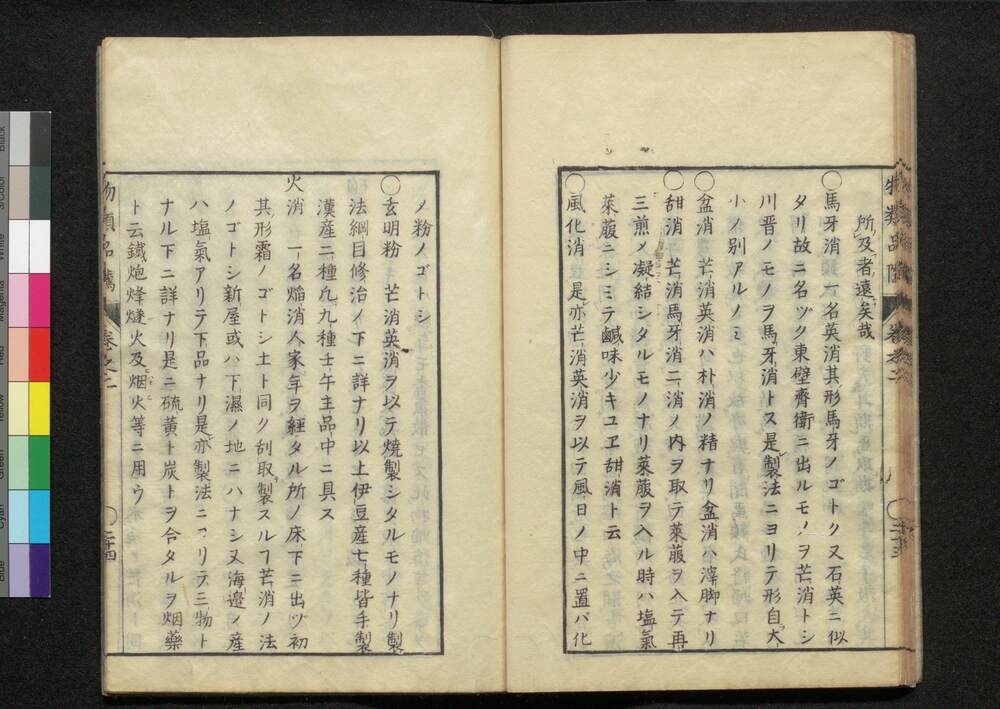 所及者遠矣哉
〇馬牙消 一名英消其形馬牙ノゴトク又石英ニ似
タリ故ニ名ツク東壁齊衛ニ出ルモノヲ芒消トシ
川晋ノモノヲ馬牙消トス是製法ニヨリテ形自大
小ノ別アルノミ
〇盆消 芒消英消ハ朴消ノ精ナリ盆消ハ滓脚ナリ
〇甜消 芒消馬牙消二消ノ内ヲ取テ萊菔ヲ入テ再
三煎メ凝結シタルモノナリ萊菔ヲ入ル時ハ塩氣
萊菔ニシミテ鹹味少キユヱ甜消ト云
〇風化消 是亦芒消英消ヲ以テ風日ノ中ニ置バ化
物類品隲 巻之二 〇二十三
メ粉ノゴトシ
〇玄明粉 芒消英消ヲ以テ焼製シタルモノナリ製
法綱目修治ノ下ニ詳ナリ以上伊豆産七種皆手製
漢産二種凡九種壬午主品中ニ具ス
火消 一名焔消人家年ヲ經タル所ノ床下ニ出ヅ初
其形霜ノゴトシ土ト同ク刮取製スルヿ芒消ノ法
ノゴトシ新屋或ハ下濕ノ地ニハナシ又海邉ノ産
ハ塩氣アリテ下品ナリ是亦製法ニヨリテ三物ト
ナル下ニ詳ナリ是ニ硫黄ト炭トヲ合タルヲ烟藥
ト云鐵炮烽燧火及烟火等ニ用ウ
物類品隲 巻之二 〇二十四
Black
3/Color
White
Magenta
Red
Yellow
Green
Cyan
Blue